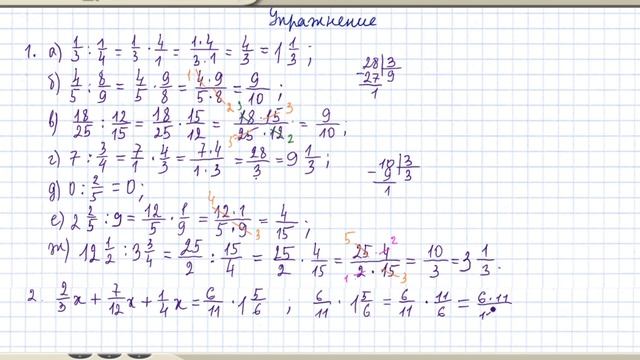 Упражнение
1. а) 1/3 : 1/4 = 1/3 · 4/1 = 1·4/3·1 = 4/3 = 1 1/3 ;
б) 4/5 : 8/9 = 4/5 · 9/8 = 4·9/5·8 = 9/10 ;
в) 18/25 : 12/15 = 18/25 · 15/12 = 18·15/25·12 = 9/10 ;
г) 7 : 3/4 = 7/1 · 4/3 = 7·4/1·3 = 28/3 = 9 1/3 ;
д) 0 : 2/5 = 0 ;
е) 2 2/5 : 9 = 12/5 · 1/9 = 12·1/5·9 = 4/15 ;
ж) 12 1/2 : 3 3/4 = 25/2 : 15/4 = 25/2 · 4/15 = 25·4/2·15 = 10/3 = 3 1/3 .
2. 2/3 x + 7/12 x + 1/4 x = 6/11 · 1 5/6 ; 6/11 · 1 5/6 = 6/11 · 11/6 = 6·11/1
28 | 3
- 27 | 9
1
10 | 3
- 9 | 3
1